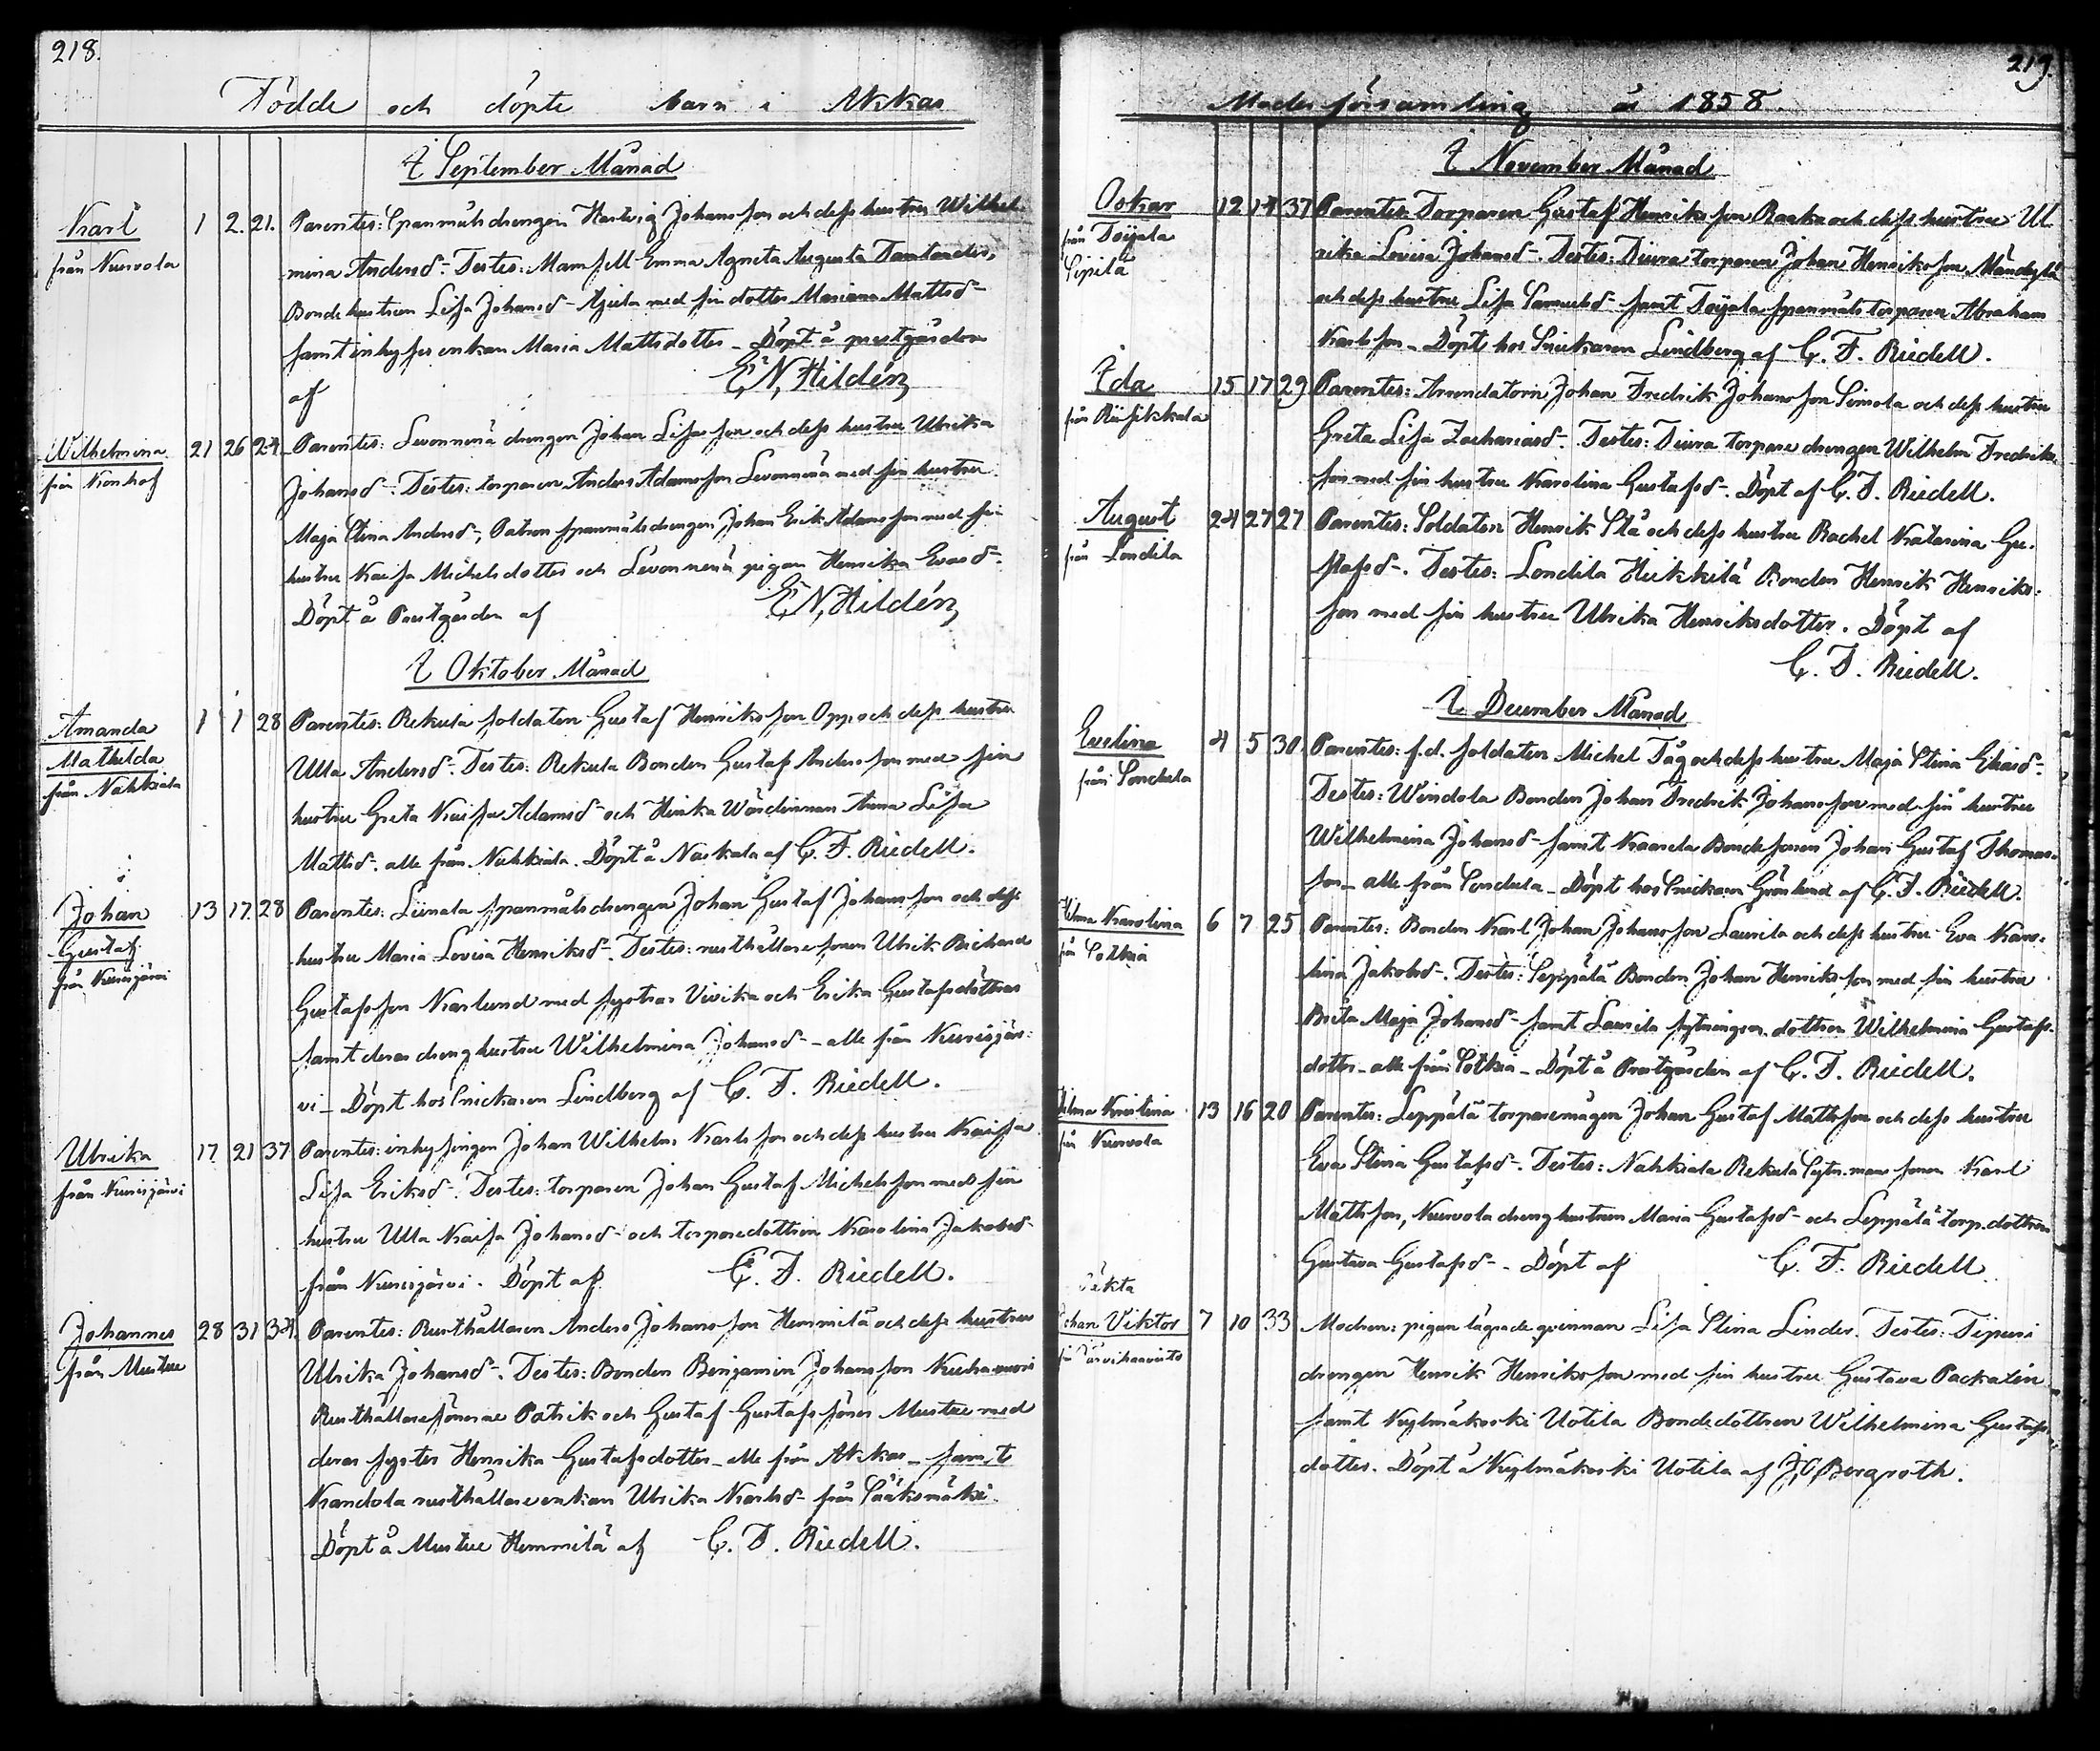 218.
Födde och döpte barn i Akkas
I September Månad
Karl 1 2. 21. Parentes: Spanmålsdrengen Hartvig Johansson och dess hustru Wilhel-
från Kurvola mina Andersd-. Testes: Mamsell Emma Agneta Augusta
Bondehustrun Lisa Johansd- med sin dotter Mariana Mattsd-
samt inhysesenkan Maria Mattsdotter - Döpt å prestgården
af E N, Hildén
Wilhelmina 21 26 24. Parentes: Levonnenä drengen Johan Lisasson och dess hustru Ulrika
från Konhof Johansd-. Testes: torparen Anders Adamsson Levonnenä med sin hustru
Maja Stina Andersd-, Patron spanmålsdrengen Johan Erik Adamsson med sin
hustru Kaisa Michelsdotter och Levonnenä pigan Henrika Evasd-.
Döpt å Prestgården af E N, Hildén
I Oktober Månad
Amanda 1 1 28 Parentes: Rekula soldaten Gustaf Henriksson Opp och dess hustru
Mathilda Ulla Andersd-. Testes: Rekula Bonden Gustaf Andersson med sin
från Nahkiala hustru Greta Kaisa Adamsd- och Heikka Wärdinnan Anna Lisa
Mattsd-. alle från Nahkiala. Döpt å Naskala af C. F. Riedell.
Johan 13 17 28 Parentes: Liinala spanmålsdrengen Johan Gustaf Johansson och dess
Gustaf hustru Maria Lovisa Henriksd-. Testes: rusthållaresonen Ulrik Richard
från Kurisjärvi Gustafsson Karlund med systrar Vivika och Erika Gustafsdöttrar
samt deras drenghustru Wilhelmina Johansd- - alle från Kurisjär-
vi - Döpt hos Snickaren Lindberg af C. F. Riedell.
Ulrika 17 21 37 Parentes: inhysingen Johan Wilhelm Karlsson och dess hustru Kaisa
från Kurisjärvi Lisa Eriksd-. Testes: torparen Johan Gustaf Michelsson med sin
hustru Ulla Kaisa Johansd- och torparedottren Karolina Jakobsd-
från Kurisjärvi. Döpt af C. F. Riedell.
Johannes 28 31 34. Parentes: Rusthållaren Anders Johansson Hemmilä och dess hustru
från Mustue Ulrika Johansd-. Testes: Bonden Benjamin Johansson
Rusthållaresönerne Patrik och Gustaf Gustafssöner Mustue med
deras syster Henrika Gustafsdotter - alle från Akkas - samt
Kandola rusthållareenkan Ulrika Karlsd- från Sääksmäki.
Döpt å Mustue Hemmilä af C. F. Riedell.
219.
Moderförsamling år 1858.
I November Månad
Oskar 12 14 37 Parentes: Torparen Gustaf Henriksson Raaka och dess hustru Ul
från Toijala rika Lovisa Johansd-. Testes: Diura torparen Johan Henriksson
Sipilä och dess hustru Lisa Samuelsd- samt Toijala spanmåls torparen Abraham
Karlsson - Döpt hos Snickaren Lindberg af C. F. Riedell.
Ida 15 17 29 Parentes: Arrendatorn Johan Fredrik Johansson Simola och dess hustru
från Riisikkala Greta Lisa Zachariasd-. Testes: Diura torpare drengen Wilhelm Fredriks-
son med sin hustru Karolina Gustafsd-. Döpt af C. F. Riedell.
August 24 27 27 Parentes: Soldaten Henrik Stå och dess hustru Rachel Katarina Gu-
från Londila stafsd-. Testes: Londila Heikkilä Bonden Henrik Henriks-
son med sin hustru Ulrika Henriksdotter. Döpt af
C. F. Riedell.
I December Månad
Evelina 4 5 30 Parentes: f.d. soldaten Michel Tåg och dess hustru Maja Stina Eliasd-.
från Sondula Testes: Windola Bonden Johan Fredrik Johansson med sin hustru
Wilhelmina Johansd- samt Kaarela Bondesonen Johan Gustaf Thomas-
son - alle från Sondula - Döpt hos Snickaren Grönlund af C. F. Riedell.
Hilma Karolina 6 7 25 Parentes: Bonden Karl Johan Johansson Laurila och dess hustru Eva Karo-
från Sotkia lina Jakobsd-. Testes: Seppälä Bonden Johan Henriksson med sin hustru
Brita Maja Johansd- samt Laurila sytningsm. dottren Wilhelmina Gustafs-
dotter - alle från Sotkia - Döpt å Prestgården af C. F. Riedell.
Hilma Kristina 13 16 20 Parentes: Leppälä torparemågen Johan Gustaf Mattsson och dess hustru
från Kurvola Eva Stina Gustafsd-. Testes: Nahkiala Rekula Sytn.mans sonen Karl
Mattsson, Kurvola drenghustrun Maria Gustafsd- och Leppälä torp.dottren
Gustava Gustafsd-. Döpt af C. F. Riedell
Oäkta
Johan Viktor 7 10 33 Modren: pigan lägrade qvinnan Lisa Stina Linder. Testes:
från drengen Henrik Henriksson med sin hustru Gustava Packalén
samt Kylmäkoski Uotila Bondedottren Wilhelmina Gustafs-
dotter. Döpt å Kylmäkoski Uotila af Bergroth.